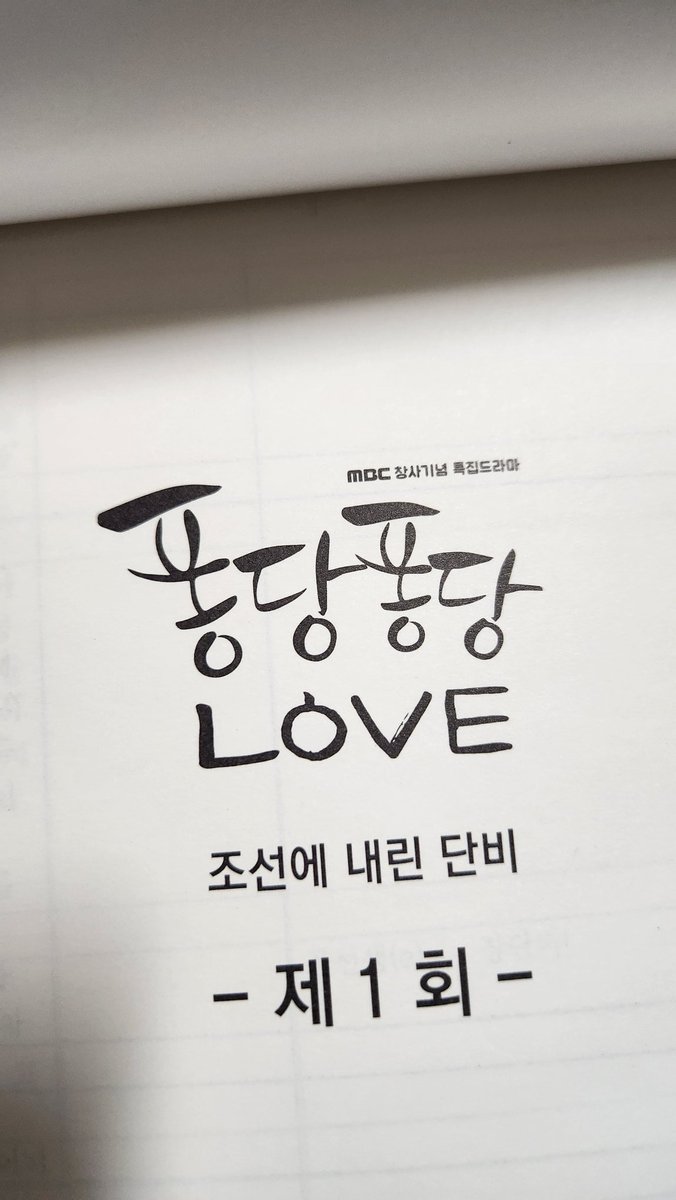 MBC 창사기념 특집드라마
퐁당퐁당
LOVE
조선에 내린 단비
- 제 1 회 -